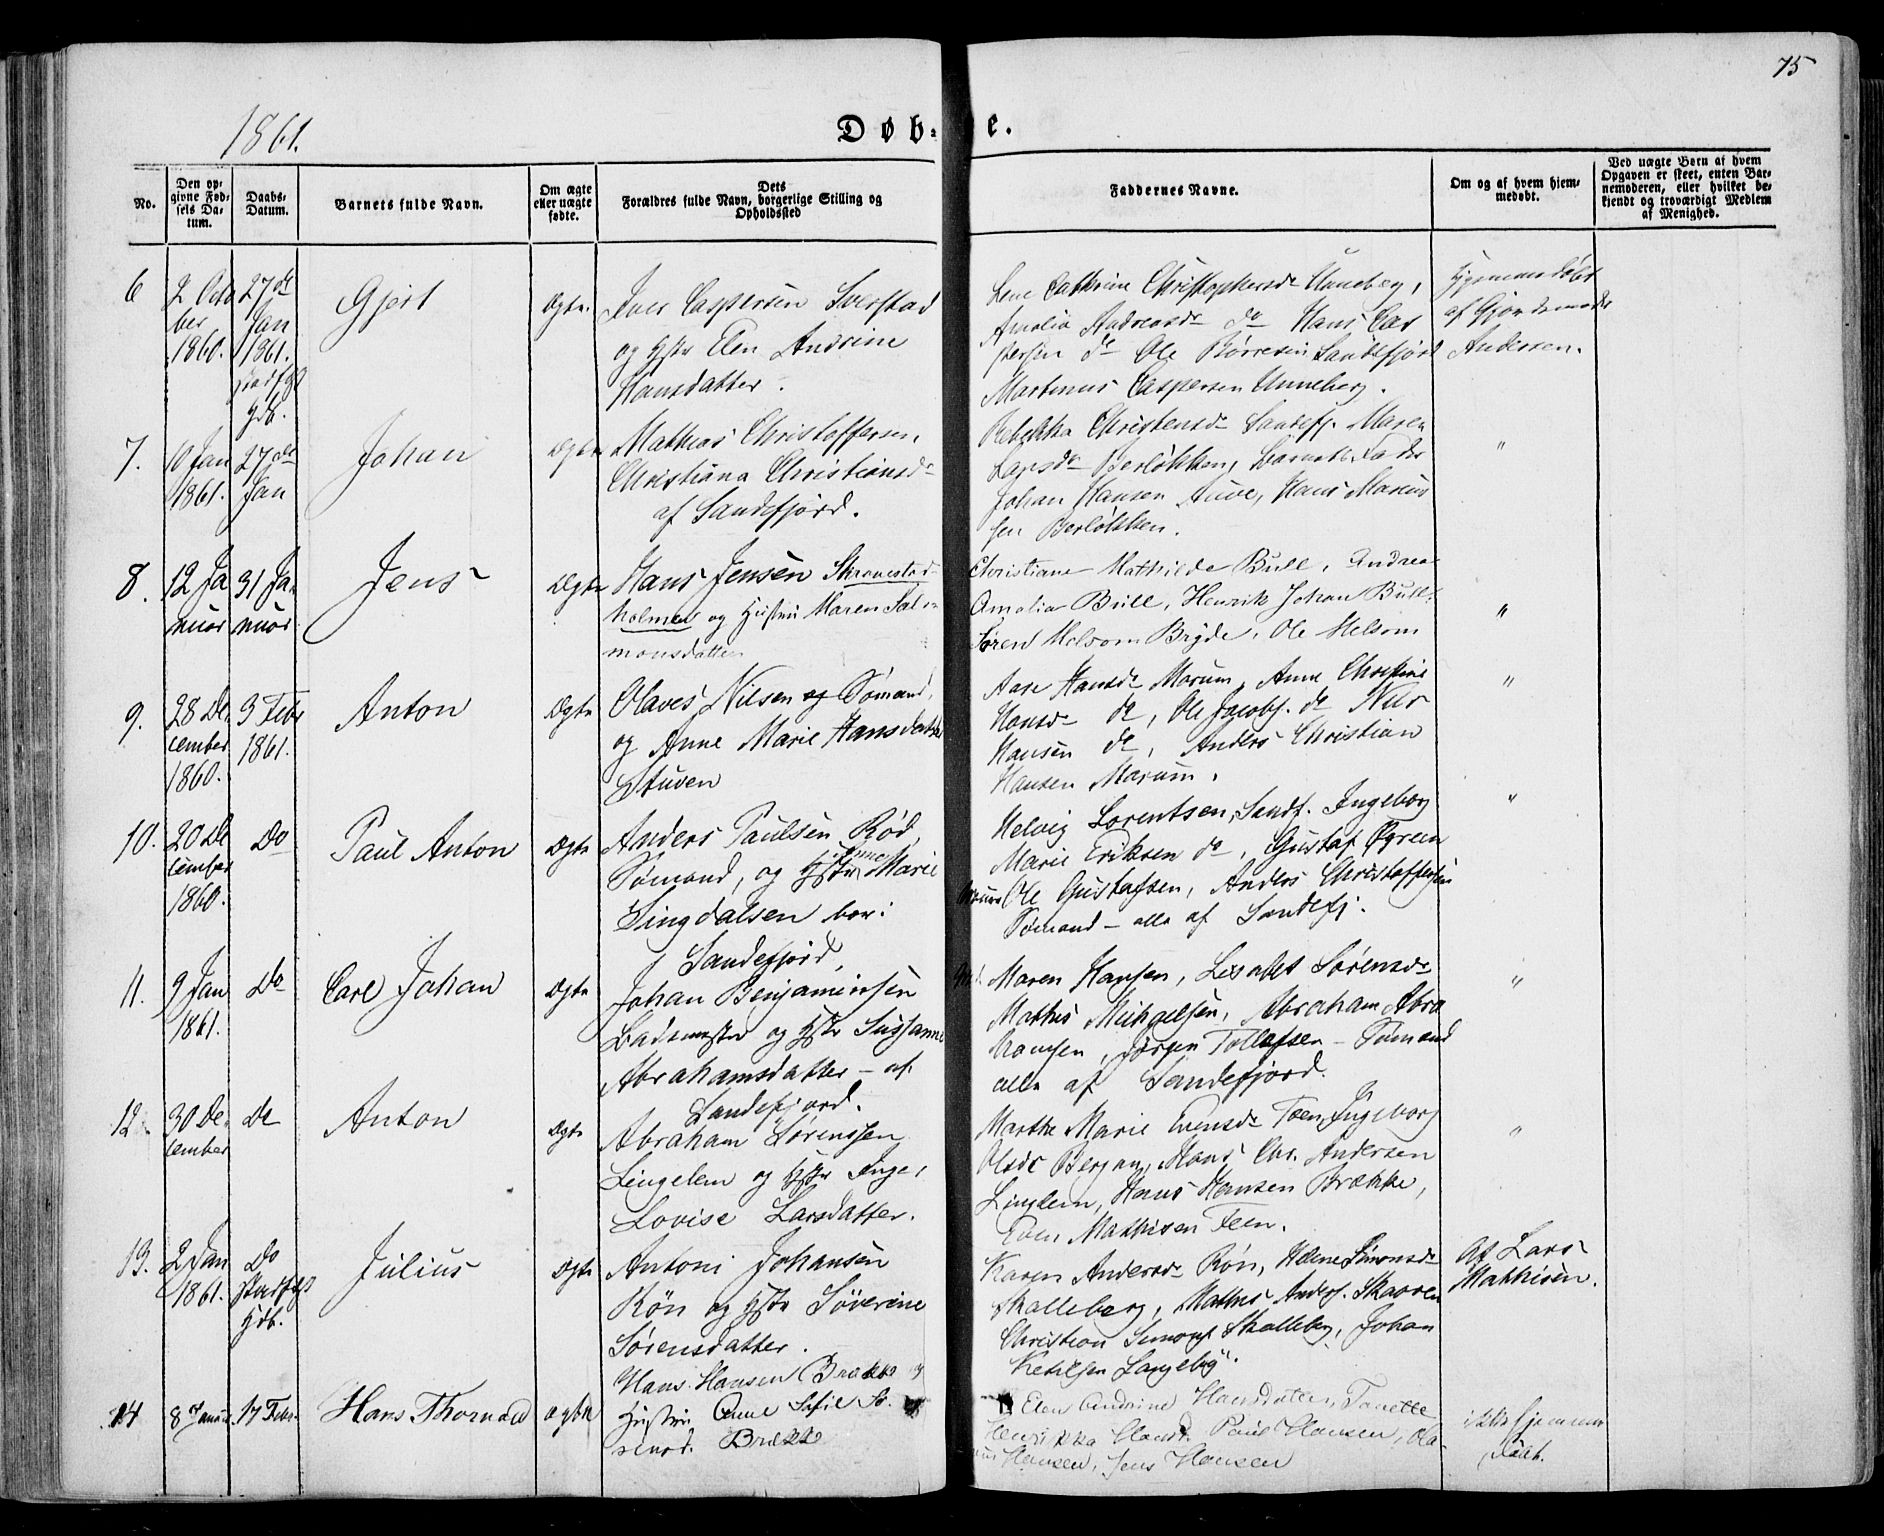 75
1861.
Døb-e.
No.
Den op-
givne Fød-
sels Da-
tum.
Daabs-
Datum.
Barnets fulde Navn.
Om ægte
eller uægte
fødte.
Dets
Forældres fulde Navn, borgerlige Stilling og
Opholdssted
Faddernes Navne.
Om og af hvem hjem-
medøbt.
Ved uægte Børn af hvem
Opgaven er skeet, enten Bar-
nemoderen, eller hvilket be-
kjendt og troværdigt Medlem
af Menighed.
6
2 Octo
ber
1860.
27de
Jan
1861.
stadf
hdb.
Gjert
Ægte.
Iver Caspersen Sverstad
og Hstr Elen Andrine
Hansdatter.
Lene Cathrine Christophersdr Unneberg,
Amalia Andreasdr do Hans Cas
persen do Ole Børresen Sandefjord
Martinus Caspersen Unneberg.
Hjemmedøbt
af Gjordemoder
Andersen.
7.
10 Jan
1861.
27de
Jan
Johan
Ægte
Mathias Christoffersen,
Christiana Christiansdr
af Sandefjord.
Rebekka Christensdr Sandefj. Maren
Larsdr Berløkken, Barnets Fader
Johan Hansen Auve, Hans Marius
sen Berløkken.
"
8.
12 Ja
nuar
31 Ja-
nuar
Jens
Ægte
Hans Jensen Skravestad
holmen og Hustru Maren Salo
monsdatter
Christiane Mathilde Bull, Andrea
Amalia Bull, Henrik Johan Bull,
Søren Melsom Bryde, Ole Melsom
"
9.
28 De
cember
1860.
3 Febr
1861.
Anton
Ægte
Olaves Nilsen og Sømand,
og Anne Marie Hansdatter
Stuven
Aase Hansdr Marum, Anne Christine
Hansdr do, Ole Jacobs. do Nils
Hansen do, Anders Christian
Hansen Marum.
"
10.
20 De
cember
1860.
Do
Paul Anton
Ægte
Anders Paulsen Rød,
Sømand, og Hstr Anne Marie
Ringdalsen bor i
Sandefjord,
Helvig Lorentsen, Sandf. Ingeborg
Marie Eriksen do, Gustaf Øgreen
Ole Gustafsen, Anders Christoffersen
Sømand – alle af Sandefj.
"
11.
9 Jan
1861.
Do
Carl Johan
Ægte
Johan Benjaminsen
Bademester og Hstr Susanne
Abrahamsdatter – af
Sandefjord.
Maren Hansen, Lisabet Sørensdr
Mathis Michaelsen, Abraham Abra
hamsen, Jørgen Tollefsen – Sømænd
alle af Sandefjord.
"
12.
30 De-
cember
Do
Anton
Ægte
Abraham Sørenssen
Lingelem og Hstr Inge
Lovise Larsdatter.
Marthe Marie Evensdr Feen, Ingeborg
Olsdr Bergan, Hans Chr. Andersen
Lingelem, Hans Hansen Brække,
Even Mathisen Feen.
"
13.
2 Jan
1861.
Do
stadf
hdb.
Julius
Ægte
Antoni Johansen
Røn og Hstr Søverine
Sørensdatter.
Karen Andersdr Røn, Helene Simonsdr
Skalleberg, Mathis Anders. Skaaren
Christian Simons Skalleberg, Johan
Ketilsen Langeby.
Af Lars
Mathisen.
14
8 Januar
17 Febr.
Hans Thorvald
ægte
Hans Hansen Brække og
Hustru Anne Sofie
Brække
Elen Andrine Hansdatter, Tanette
Henrikka Paul Hansen, Ola
us Hansen, Jens Hansen
ikke hjemme
døbt.